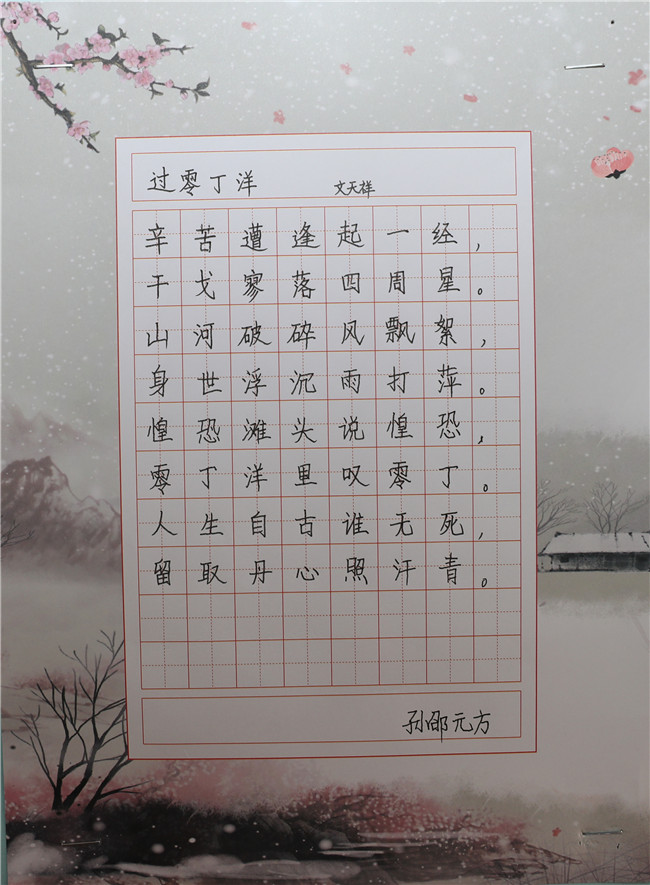 过零丁洋 文天祥
辛苦遭逢起一经，
干戈寥落四周星。
山河破碎风飘絮，
身世浮沉雨打萍。
惶恐滩头说惶恐，
零丁洋里叹零丁。
人生自古谁无死，
留取丹心照汗青。
孙邵元方